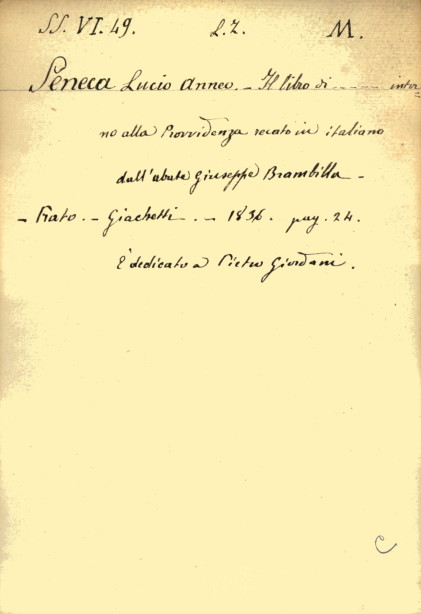 SS. VI. 49. L. Z. M.
Seneca Lucio Anneo. - Il libro di ....... inter
no alla Provvidenza recato in italiano
dall'abate Giuseppe Brambilla -
- Prato. - Giachetti. - 1836. pag. 24.
È dedicato a Pietro Giordani.
C